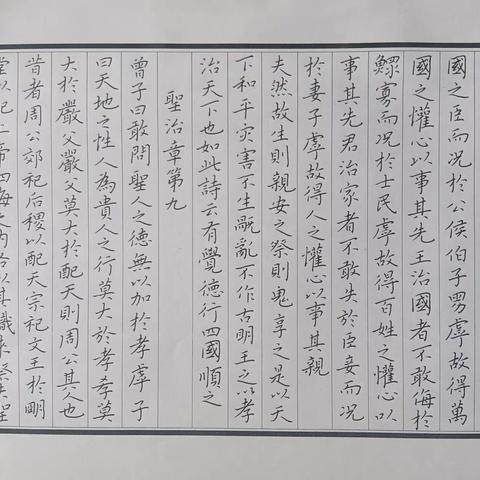 國之臣而況於公侯伯子男虖故得萬
國之懽心以事其先王治國者不敢侮於
鰥寡而況於士民虖故得百姓之懽心以
事其先君治家者不敢失於臣妾而況
於妻子虖故得人之懽心以事其親
夫然故生則親安之祭則鬼享之是以天
下和平灾害不生亂不作古明王之以孝
治天下也如此詩云有覺德行四國順之
聖治章第九
曾子曰敢問聖人之德無以加於孝虖子
曰天地之性人為貴人之行莫大於孝孝莫
大於嚴父嚴父莫大於配天則周公其人也
昔者周公郊祀后稷以配天宗祀文王於明
堂以祀上帝四海之內各以其職来祭夫聖